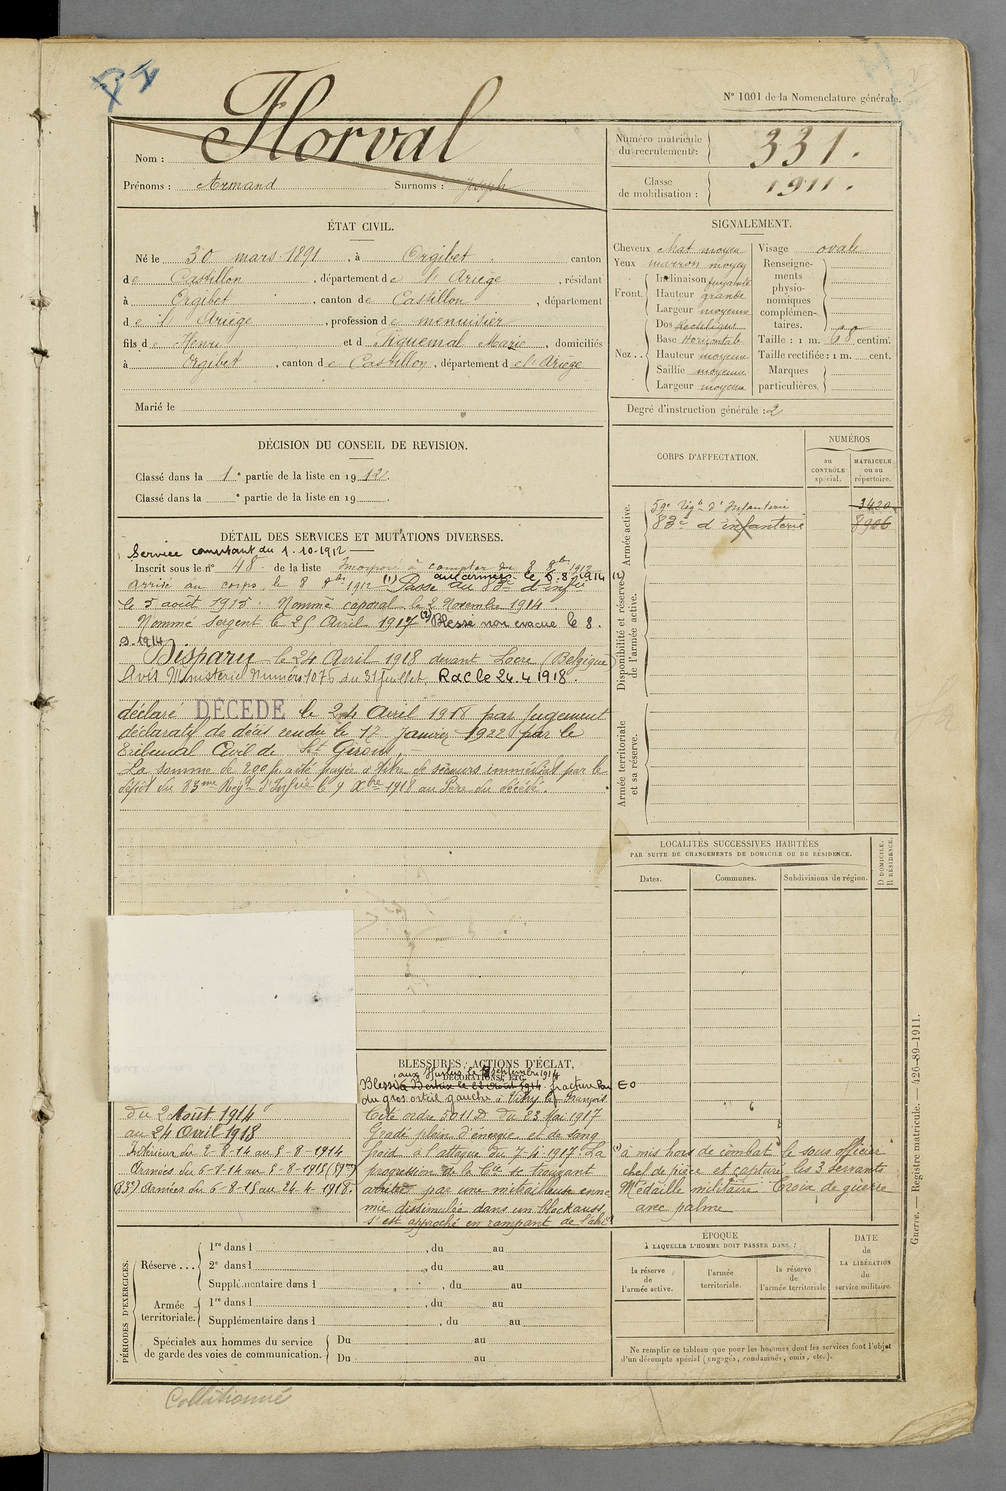 N° 1001 de la Nomenclature générale.
Nom : Florval
Prénoms : Armand Surnoms : Joseph
Numéro matricule du recrutement : 331.
Classe de mobilisation : 1911.
ÉTAT CIVIL.
Né le 30 mars 1891, à Orgibet canton
de Castillon, département de l'Ariège, résidant
à Orgibet, canton de Castillon, département
de l'Ariège, profession de menuisier
fils de Henri et de Piquemal Marie, domiciliés
à Orgibet, canton de Castillon, département de l'Ariège
Marié le
SIGNALEMENT.
Cheveux chat moyen
Yeux marron moyen
Front. Inclinaison fuyante
Hauteur grande
Largeur moyenne
Nez. Dos Rectiligne
Base Horizontale
Hauteur moyenne
Saillie moyenne
Largeur moyenne
Visage ovale
Renseignements physionomiques complémentaires.
Taille : 1 m. 68 centim.
Taille rectifiée : 1 m. cent.
Marques particulières.
Degré d'instruction générale : 2
DÉCISION DU CONSEIL DE REVISION.
Classé dans la 1e partie de la liste en 1912.
Classé dans la e partie de la liste en 19
CORPS D'AFFECTATION.
NUMÉROS
au CONTRÔLE spécial.
MATRICULE ou au répertoire.
Armée active.
59e Régt d'Infanterie 3420
83e d'infanterie 8906
Disponibilité et réserve de l'armée active.
Armée territoriale et sa réserve.
DÉTAIL DES SERVICES ET MUTATIONS DIVERSES.
Service comptant du 1.10.1912
Inscrit sous le n° 48 de la liste Incorporé à compter du 8 8bre 1912
Arrivé au corps le 8 8bre 1912 (1) Passé au 83e d'infie
(1) aux armées le 6.8.1914
le 5 août 1915. Nommé caporal le 2 Novembre 1914.
Nommé Sergent le 25 Avril 1917 (2) Blessé non évacué le 8.
9.1914
Disparu le 24 Avril 1918 devant Locre (Belgique)
Avis Ministériel Numéro 1076 du 31 Juillet. Rac le 24.4.1918.
déclaré DÉCÉDÉ le 24 Avril 1918 par Jugement
déclaratif de décès rendu le 17 Janvier 1922 par le
Tribunal Civil de St Girons.
La somme de 200 fr a été payée à titre de secours immédiat par le
dépôt du 83me Régt d'Infrie le 9 Xbre 1918 au Père du décédé.
LOCALITÉS SUCCESSIVES HABITÉES
PAR SUITE DE CHANGEMENTS DE DOMICILE OU DE RÉSIDENCE.
Dates. Communes. Subdivisions de région. D DOMICILE. R RÉSIDENCE.
du 2 Août 1914
au 24 Avril 1918
Intérieur du 2-8-14 au 5-8-1914
Armées du 6-8-14 au 5-8-1915 (59e)
(83e) Armées du 6-8-15 au 24-4-1918.
BLESSURES, ACTIONS D'ÉCLAT,
DÉCORATIONS, ETC.
aux Hurlus le 8 septembre 1914
Blessé à Bertrix le 22 août 1914 fracture
du gros orteil gauche à Vitry le François.
Cité ordre 5011 D du 23 Mai 1917
Gradé plein d'énergie et de sang
froid à l'attaque du 7-4-1917. La
progression de la Cie se trouvant
arrêtée par une mitrailleuse enne
mie dissimulée dans un blockauss
s'est approché en rampant de l'abri
(1) a mis hors de combat le sous officier
chef de pièce et capturé les 3 servants
Médaille militaire Croix de guerre
avec palme
PÉRIODES D'EXERCICES.
Réserve... 1re dans l , du au
2e dans l , du au
Supplémentaire dans l , du au
Armée territoriale. 1re dans l , du au
Supplémentaire dans l , du au
Spéciales aux hommes du service de garde des voies de communication. Du au
Du au
ÉPOQUE
À LAQUELLE L'HOMME DOIT PASSER DANS :
la réserve de l'armée active.
l'armée territoriale.
la réserve de l'armée territoriale
DATE de LA LIBÉRATION du service militaire.
Ne remplir ce tableau que pour les hommes dont les services font l'objet
d'un décompte spécial (engagés, condamnés, omis, etc.).
Guerre. — Registre matricule. — 426-89-1911.
Collationné